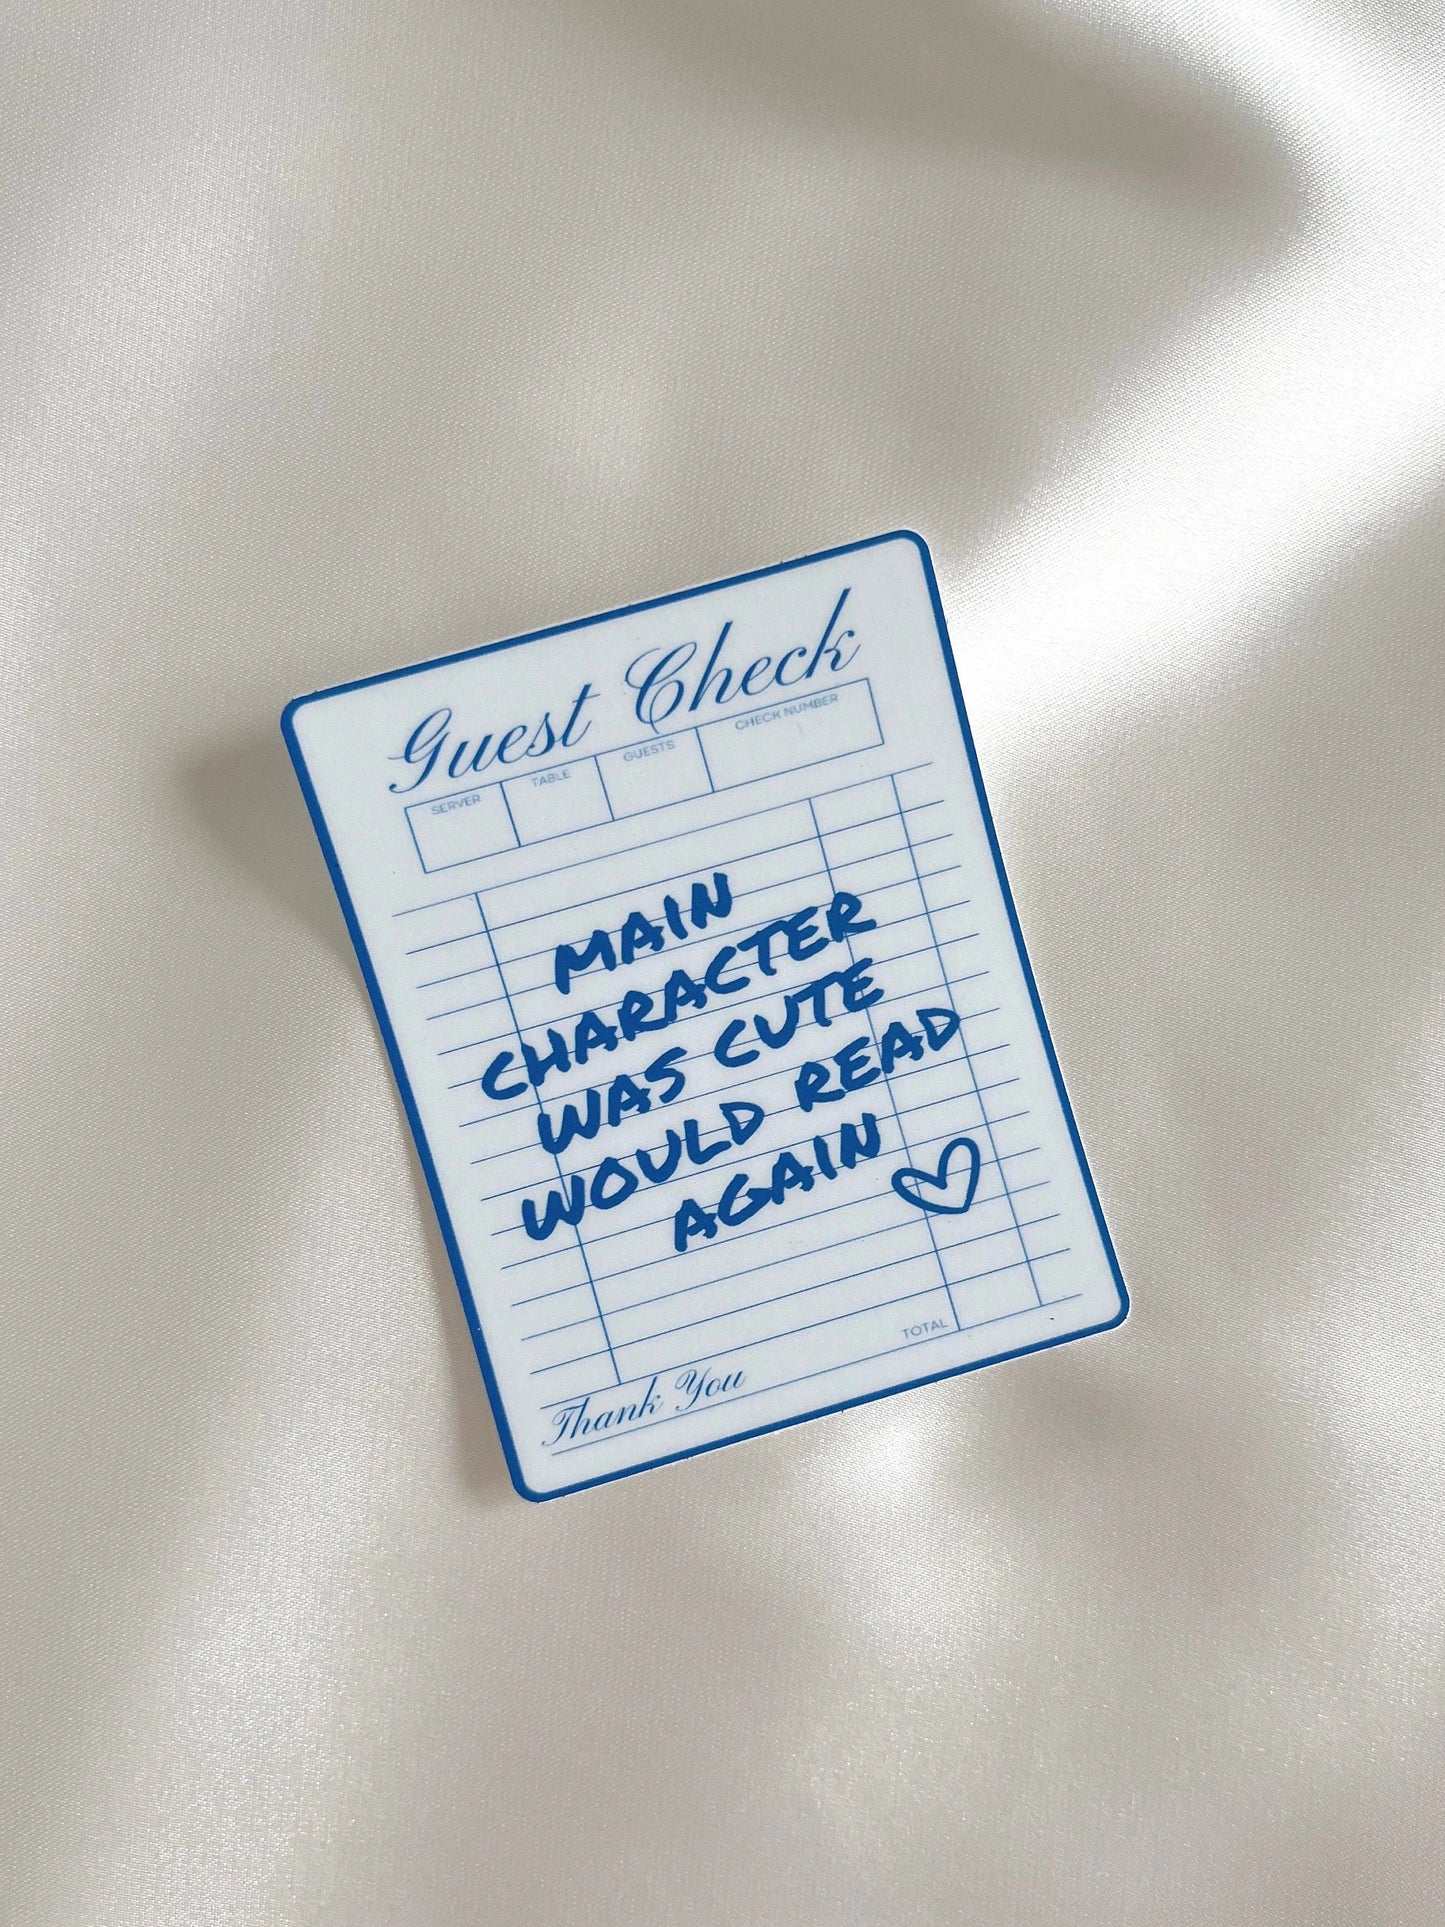 Guest Check
SERVER TABLE GUESTS CHECK NUMBER
MAIN
CHARACTER
WAS CUTE
WOULD READ
AGAIN
TOTAL
Thank You